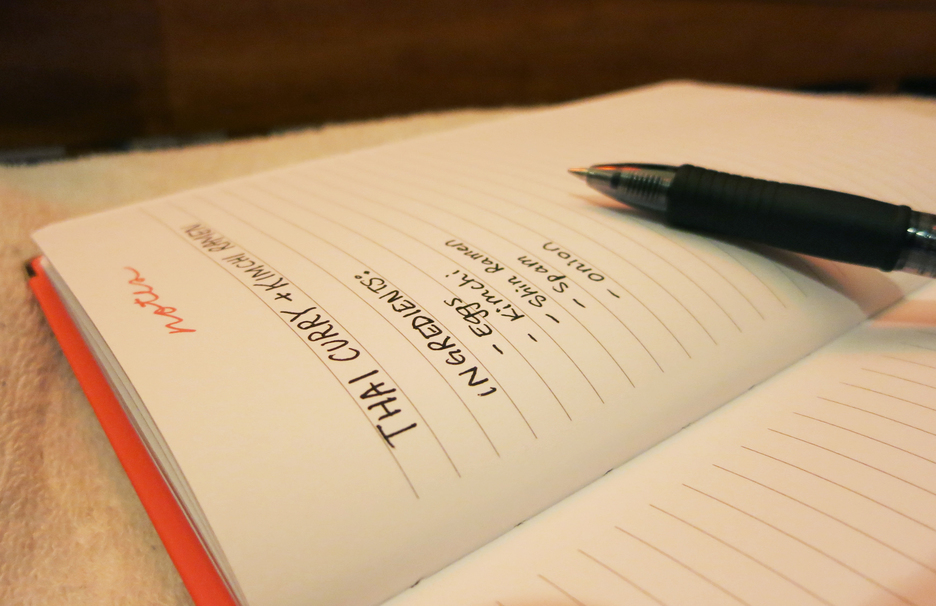 nota
THAI CURRY + KIMCHI RAMEN
INGREDIENTS:
- Eggs
- Kimchi
- Shin Ramen
- Spam
- onion